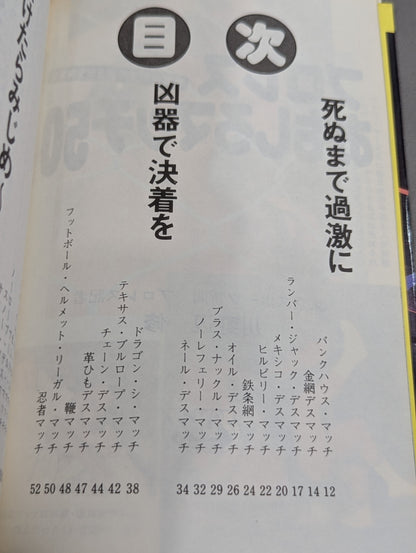 目次
死ぬまで過激に
バンクハウス・マッチ 12
金網デスマッチ 14
ランバー・ジャック・デスマッチ 17
メキシコ・デスマッチ 20
ヒルビリー・マッチ 22
鉄条網マッチ 24
オイル・デスマッチ 26
ブラス・ナックル・マッチ 29
ノーレフェリー・マッチ 32
ネール・デスマッチ 34
凶器で決着を
ドラゴン・シ・マッチ 38
テキサス・ブルロープ・マッチ 42
チェーン・デスマッチ 44
革ひもデスマッチ 47
鞭マッチ 48
フットボール・ヘルメット・リーガル・マッチ 50
忍者マッチ 52